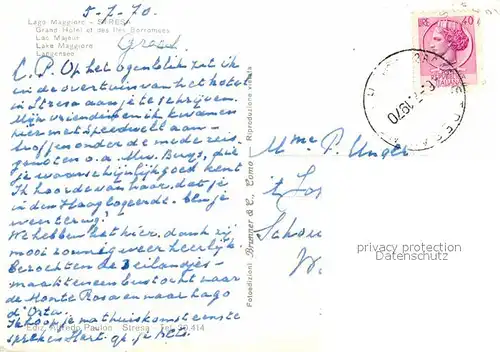 5-7-70.
Lago Maggiore - STRESA
Grand Hotel et des Iles Borromees
Lac Majeur
Lake Maggiore
Langensee
C.P. Op het ogenblik zit ik
in de overtuin van het hotel
in Stresa aan je te schrijven.
Mijn vriendin en ik kwamen
hier met speedwell aan-
troffen onder de mede reis
genoten o.a. Mw. Burgs, die
je waarschijnlijk goed kent
Ik hoorde van haar, dat je
in den Haag logeerde. Ben je
weer terug?
We hebben het hier, dank zij
mooi zonnig weer heerlijk.
Bezochten de 3 eilandjes
maakten een bustocht naar
de Monte Rosa en naar Lago
d'Orta.
Ik hoop je na thuiskomst eens te
spreken. Hart. gr. je Bets.
Ediz. Alfredo Paulon Stresa - Tel 30.414
Fotoedizioni Brunner & C., Como - Riproduzione vietata
40
1970
STRESA
Mme P. Unger
privacy protection
Datenschutz